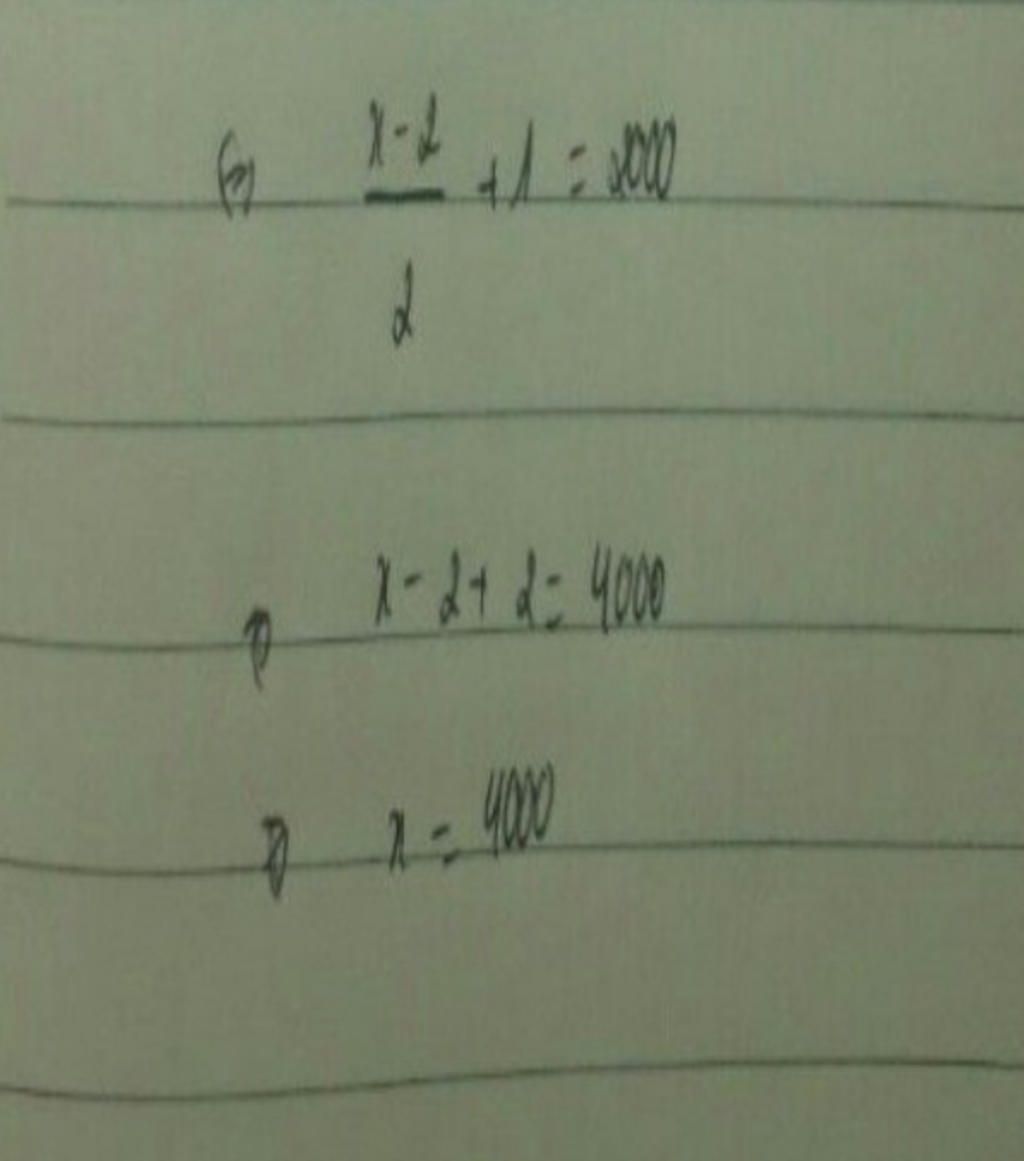 x-2
+1 = 2000
2
x - 2 + 2 = 4000
x = 4000